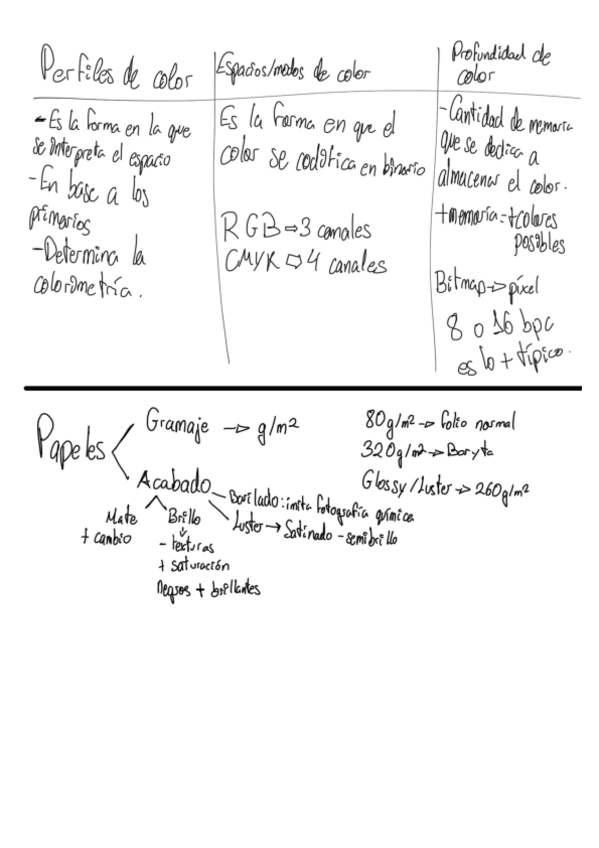 Perfiles de color
- Es la forma en la que
se interpreta el espacio
- En base a los
primarios
- Determina la
colorimetría.
Espacios/modos de color
Es la forma en que el
color se codifica en binario
RGB ⇨ 3 canales
CMYK ⇨ 4 canales
Profundidad de
color
- Cantidad de memoria
que se dedica a
almacenar el color.
+ memoria = + colores
posibles
Bitmap -> píxel
8 o 16 bpc
es lo + típico.
Papeles
Gramaje -> g/m²
80g/m² -> folio normal
320g/m² -> Baryta
Glossy/Luster -> 260g/m²
Acabado
Mate
+ cambio
Brillo
- texturas
+ saturación
Negros + brillantes
Baritado: imita fotografía química
Luster → Satinado - semibrillo